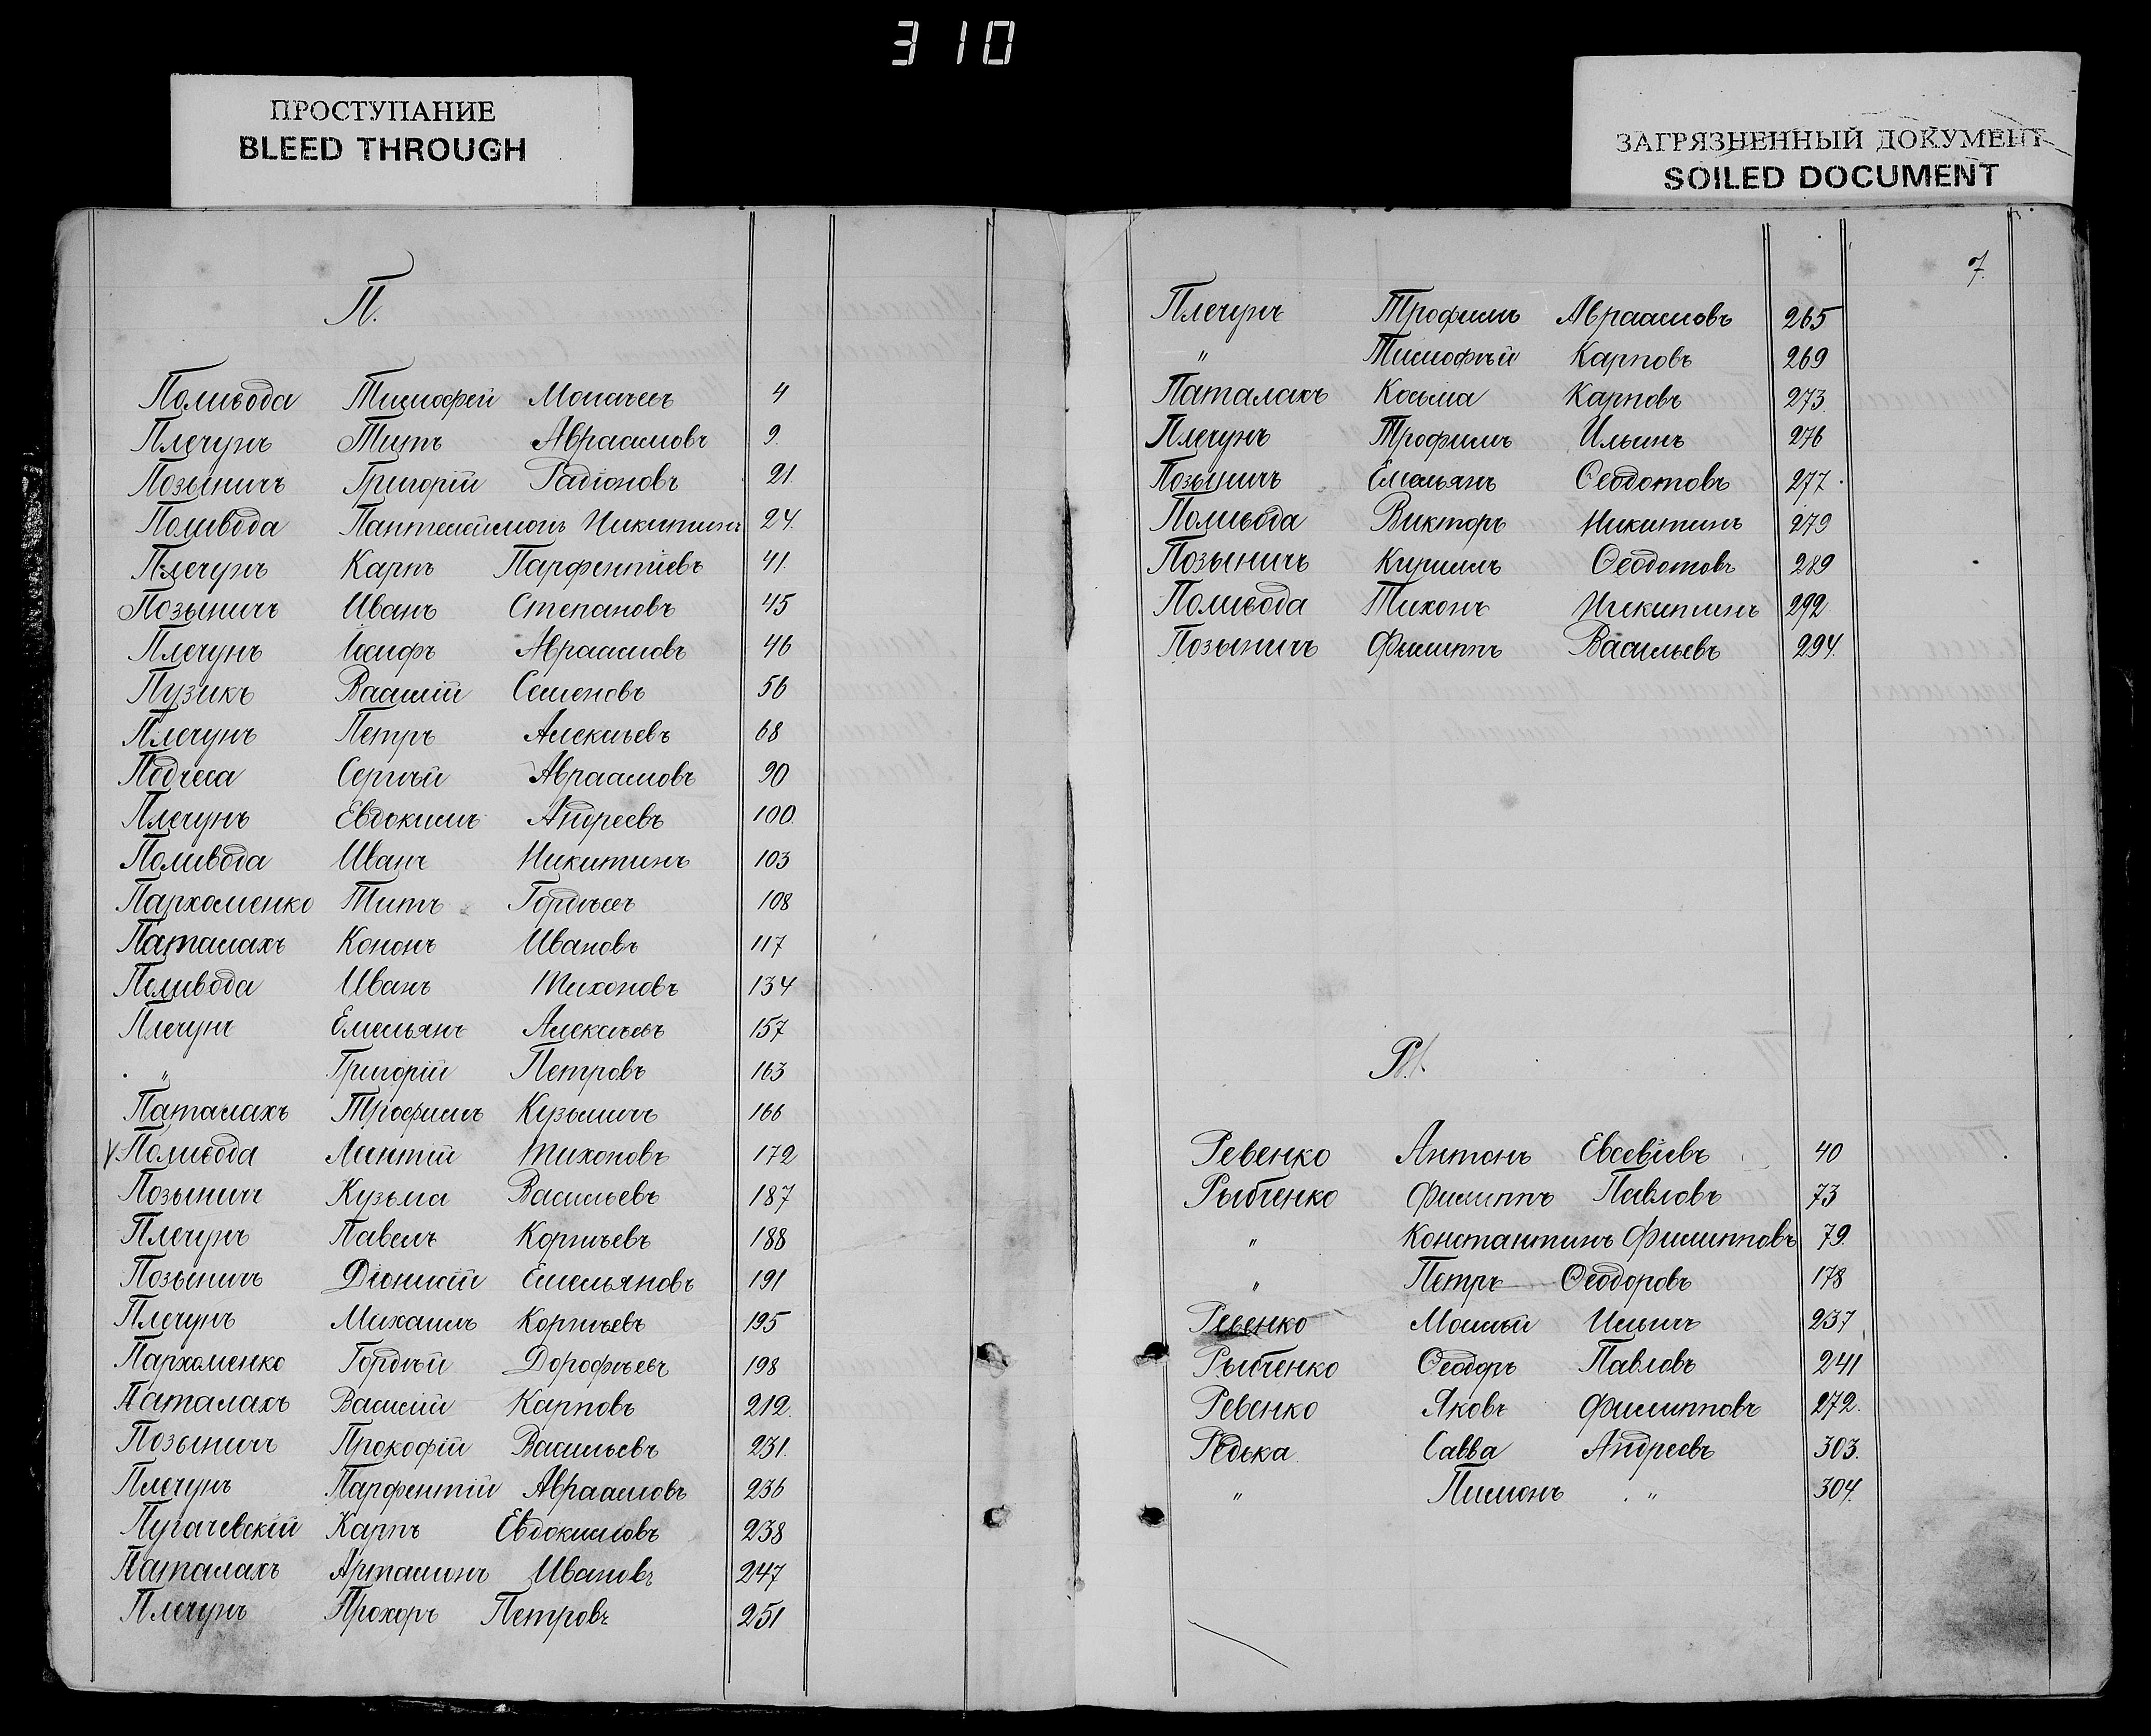 310
ПРОСТУПАНИЕ
BLEED THROUGH
ЗАГРЯЗНЕННЫЙ ДОКУМЕНТ
SOILED DOCUMENT
П.
Поливода Тимофей 4
Плечунъ Титъ Авраамовъ 9
Позыничъ Григорій Радіоновъ 21.
Поливода Пантелеймонъ Никитинъ 24.
Плечунъ Карпъ Парфентіевъ 41.
Позыничъ Иванъ Степановъ 45
Плечунъ Іосифъ Авраамовъ 46
Пузикъ Василій Семеновъ 56
Плечунъ Петръ Алексѣевъ 68
Подчеса Сергѣй Авраамовъ 90
Плечунъ Евдокимъ Андреевъ 100
Поливода Иванъ Никитинъ 103
Пархоменко Титъ Гордѣевъ 108
Паталахъ Кононъ Ивановъ 117
Поливода Иванъ Тихоновъ 134
Плечунъ Емельянъ Алексѣевъ 157
" Григорій Петровъ 163
Паталахъ Трофимъ Кузьмичъ 166
Поливода Леонтій Тихоновъ 172
Позыничъ Кузьма Васильевъ 187
Плечунъ Павелъ Корнѣевъ 188
Позыничъ Діонисій Емельяновъ 191
Плечунъ Михаилъ Корнѣевъ 195
Пархоменко Гордѣй Дорофѣевъ 198
Паталахъ Василій Карповъ 212.
Позыничъ Прокофій Васильевъ 231.
Плечунъ Парфентій Авраамовъ 236
Пугачевскій Карпъ Евдокимовъ 238
Паталахъ Артамонъ Ивановъ 247
Плечунъ Прохоръ Петровъ 251
7.
Плечунъ Трофимъ Авраамовъ 265
" Тимофѣй Карповъ 269
Паталахъ Косьма Карповъ 273.
Плечунъ Трофимъ Ильинъ 276
Позыничъ Емельянъ Ѳеодотовъ 277.
Поливода Викторъ Никитинъ 279
Позыничъ Кириллъ Ѳеодотовъ 289
Поливода Тихонъ Никитинъ 292
Позыничъ Филиппъ Васильевъ 294.
Р.
Ревенко Антонъ Евсевіевъ 40
Рыбченко Филиппъ Павловъ 73
" Константинъ Филипповъ 79.
" Петръ Ѳеодоровъ 178
Ревенко Моисѣй Ильичъ 237
Рыбченко Ѳеодоръ Павловъ 241
Ревенко Яковъ Филипповъ 272.
Редька Савва Андреевъ 303.
" Пимонъ " 304.